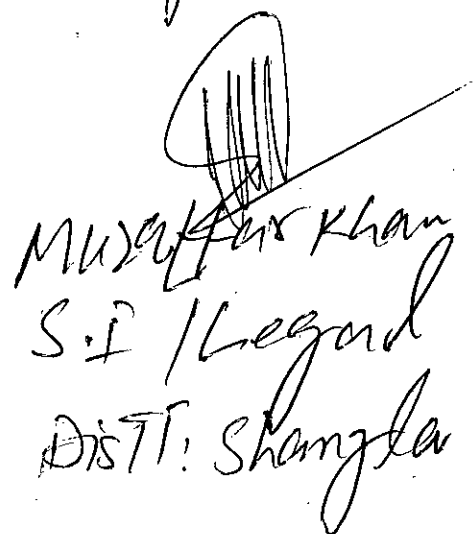 Muzaffar Khan
S.I / Legal
Distt: Shangla